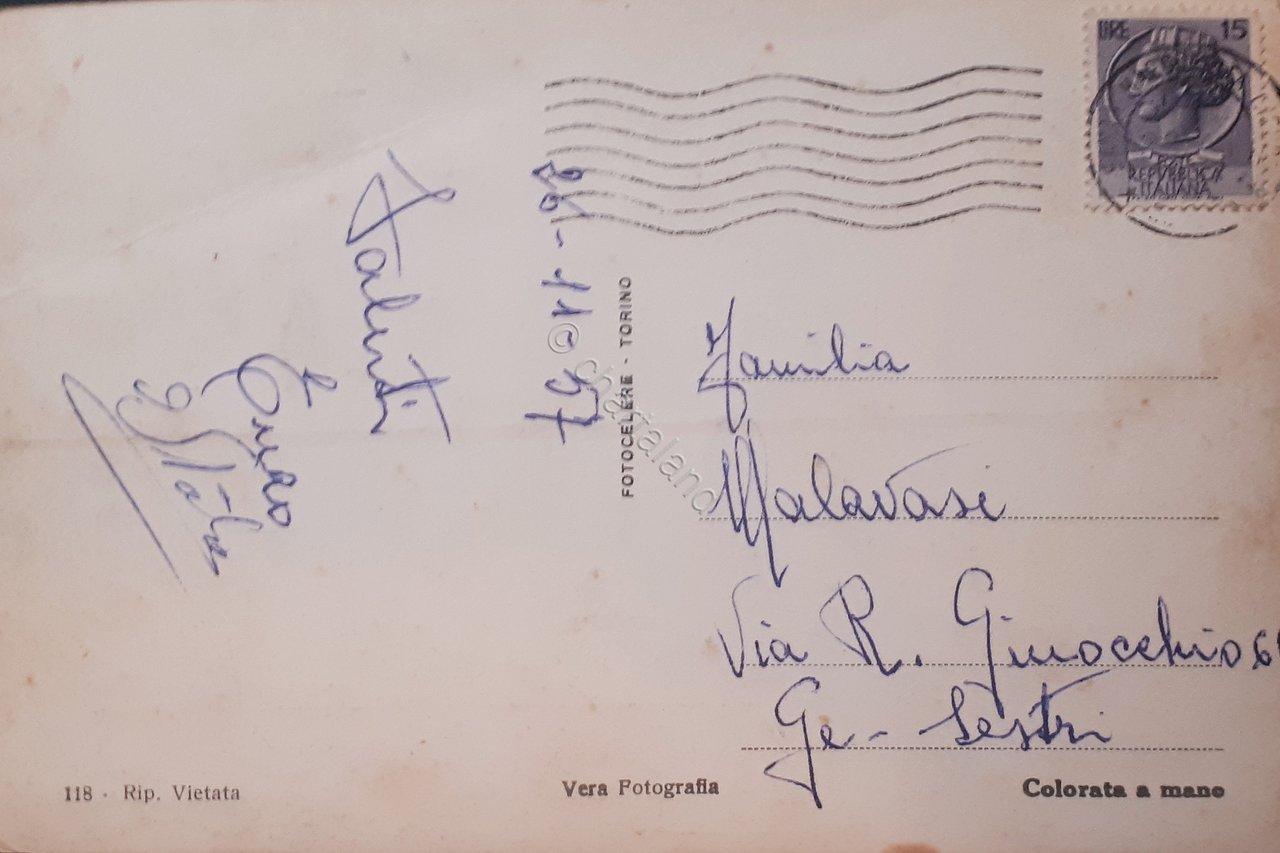 LIRE 15
POSTE
REPUBBLICA
ITALIANA
26-11-57
Saluti
FOTOCELERE - TORINO
© chartaland
Familia
Malavasi
Via R. Ginocchio 6
Ge - Sestri
118 - Rip. Vietata
Vera Fotografia
Colorata a mano